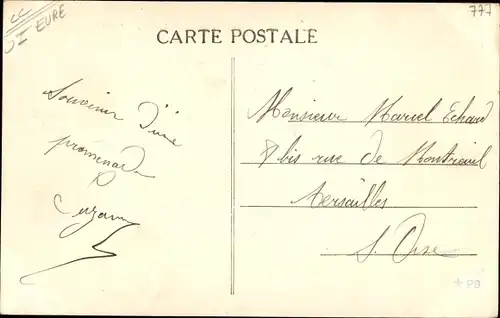 CC
EURE
777
CARTE POSTALE
Souvenir d'une
promenade
Suzanne
Monsieur Marcel Echard
8 bis rue de Montreuil
Versailles
S. Oise
PB